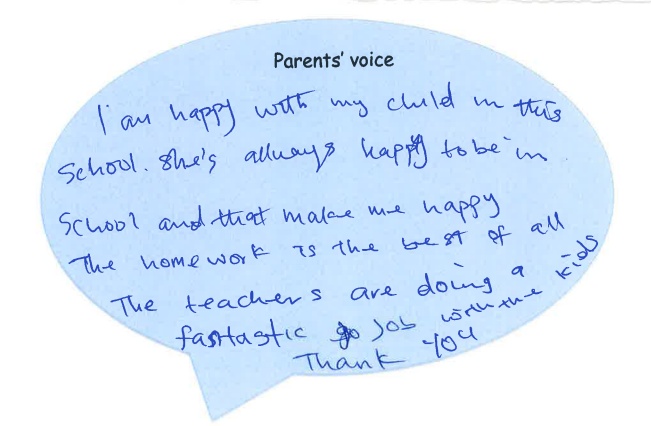 Parents' voice
I am happy with my child in this
School. She's allways happy to be in
School and that make me happy
The homework is the best of all
The teachers are doing a
fastastic job with the kids
Thank you